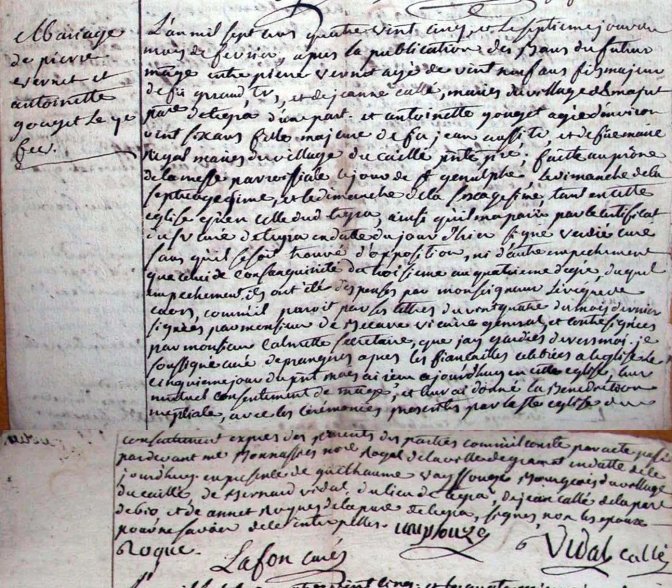 Mariage
de pierre
vernet et
antoinette
gouget le 7e
fer.
L'an mil sept cens quatre vint cinq et le septieme jour du
mois de fevrier, apres la publication des bans du futur
mage entre pierre vernet agé de vint neuf ans fis majeur
de fu giraud, et de jeanne calle, mariés du village de
parse de tegra d'une part. et antoinette gouget agée d'environ
vint six ans fille majeure de fu jean aussi et de fue marie
royal mariés du village du caillé pnte psse, faite au prône
de la messe parroissiale le jour de st genulphe le dimanche de la
septuagesime, et le dimanche de la sexagesime, tant en cette
eglise qu'en celle dud tegra, ainsi qu'il m'a paru par le certificat
du sr curé de tegra en datte du jour d'hier signé verdié curé
sans qu'il se soit trouvé d'opposition, ni d'autre empechement
que celui de consanguinité du troisieme au quatrieme degré, duquel
empechement, ils ont été dispensés par monseigneur l'eveque de
caors, comm'il paroit par les lettres du vint quatre du mois dernier
signées par monsieur de becave vicaire general, et contresignées
par monsieur calmette secretaire, que jay gardées devers moi. je
soussigné curé de prangeres apres les fiancailles celebrées a leglise le
cinquieme jour du pnt mois ai reçu aujourdhuy en cette eglise, leur
mutuel consentement de mage, et leur ai donné la benediction
nuptiale, avec les ceremonies prescrites par la ste eglise du
consentement exprès des parents des parties comm'il conste par acte passé
pardevant me monnassies nore royal de la ville de gramat en datte de ce
jourdhuy en presence de guilhaume vayssouze bourgeois du village
du caillé, de bernard vidal du lieu de tegra, de jean calle de la parse
de bio, et de annet roques de la parse de tegra, signés, non les epoux
pour ne savoir de ce interpellés. vayssouze
Roque. Lafon curé Vidal callé